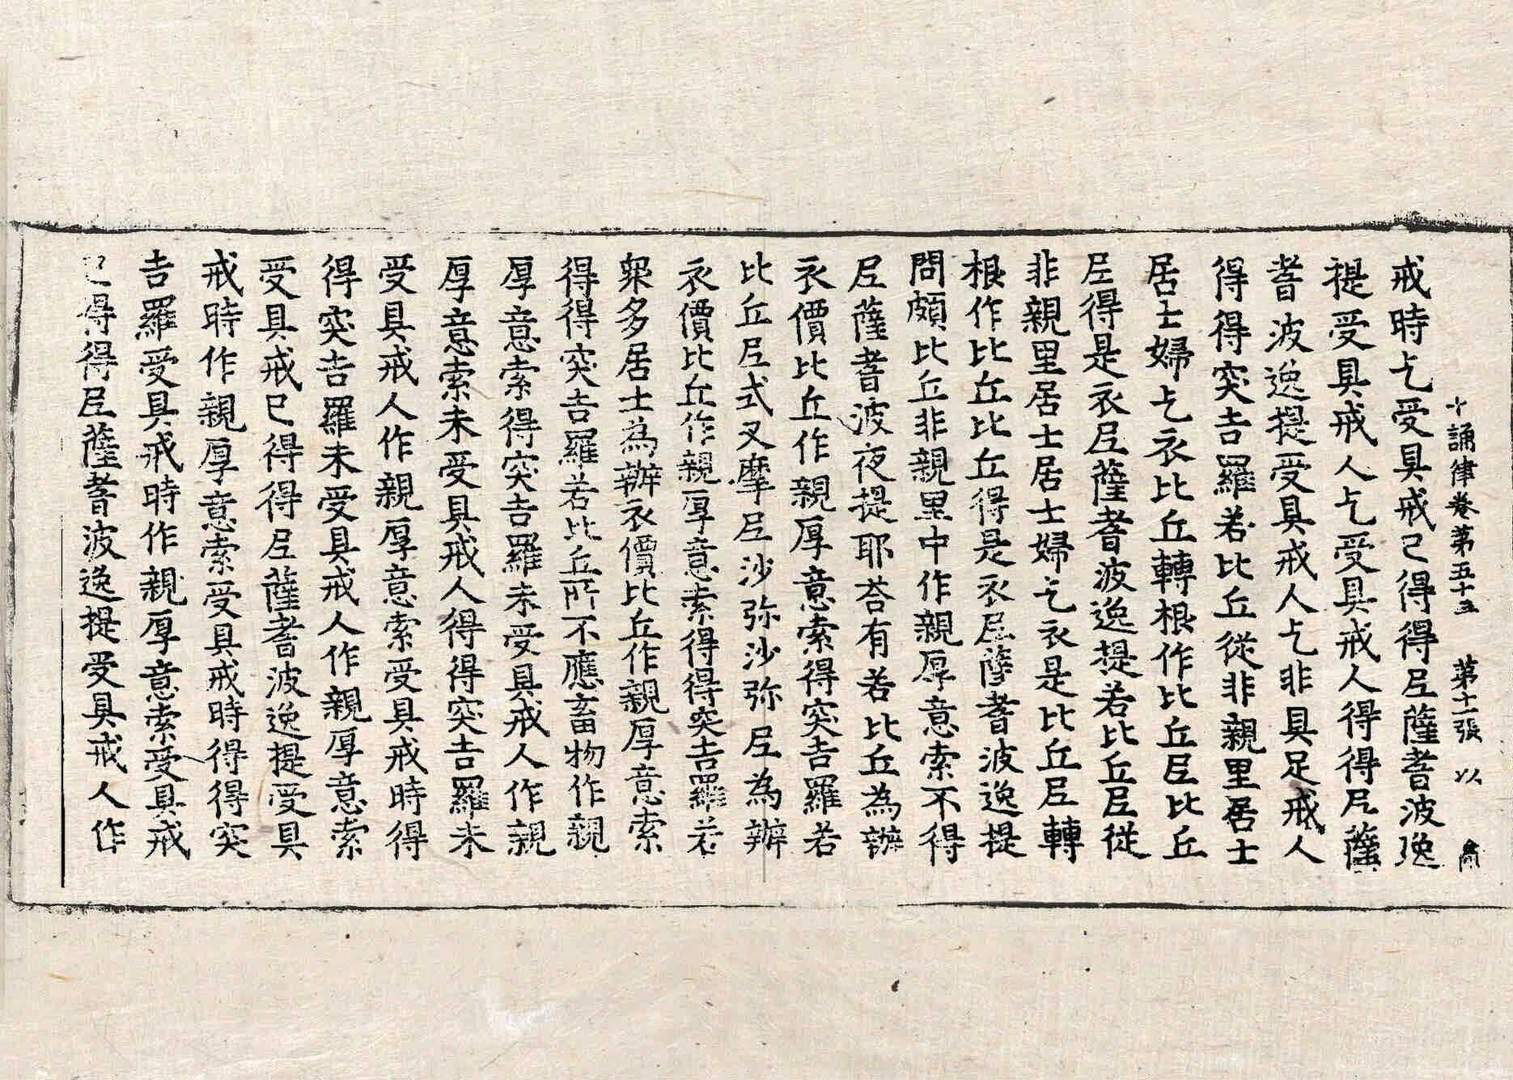 十誦律卷第五十五　第十一張　以
戒時乞受具戒已得得尼薩耆波逸
提受具戒人乞受具戒人得得尼薩
耆波逸提受具戒人乞非具足戒人
得得突吉羅若比丘從非親里居士
居士婦乞衣比丘轉根作比丘尼比丘
尼得是衣尼薩耆波逸提若比丘尼從
非親里居士居士婦乞衣是比丘尼轉
根作比丘比丘得是衣尼薩耆波逸提
問頗比丘非親里中作親厚意索不得
尼薩耆波夜提耶荅有若比丘為辦
衣價比丘作親厚意索得突吉羅若
比丘尼式叉摩尼沙弥沙弥尼為辦
衣價比丘作親厚意索得得突吉羅若
衆多居士為辦衣價比丘作親厚意索
得得突吉羅若比丘所不應畜物作親
厚意索得突吉羅未受具戒人作親
厚意索未受具戒人得得突吉羅未
受具戒人作親厚意索受具戒時得
得突吉羅未受具戒人作親厚意索
受具戒已得得尼薩耆波逸提受具
戒時作親厚意索受具戒時得得突
吉羅受具戒時作親厚意索受具戒
已得得尼薩耆波逸提受具戒人作